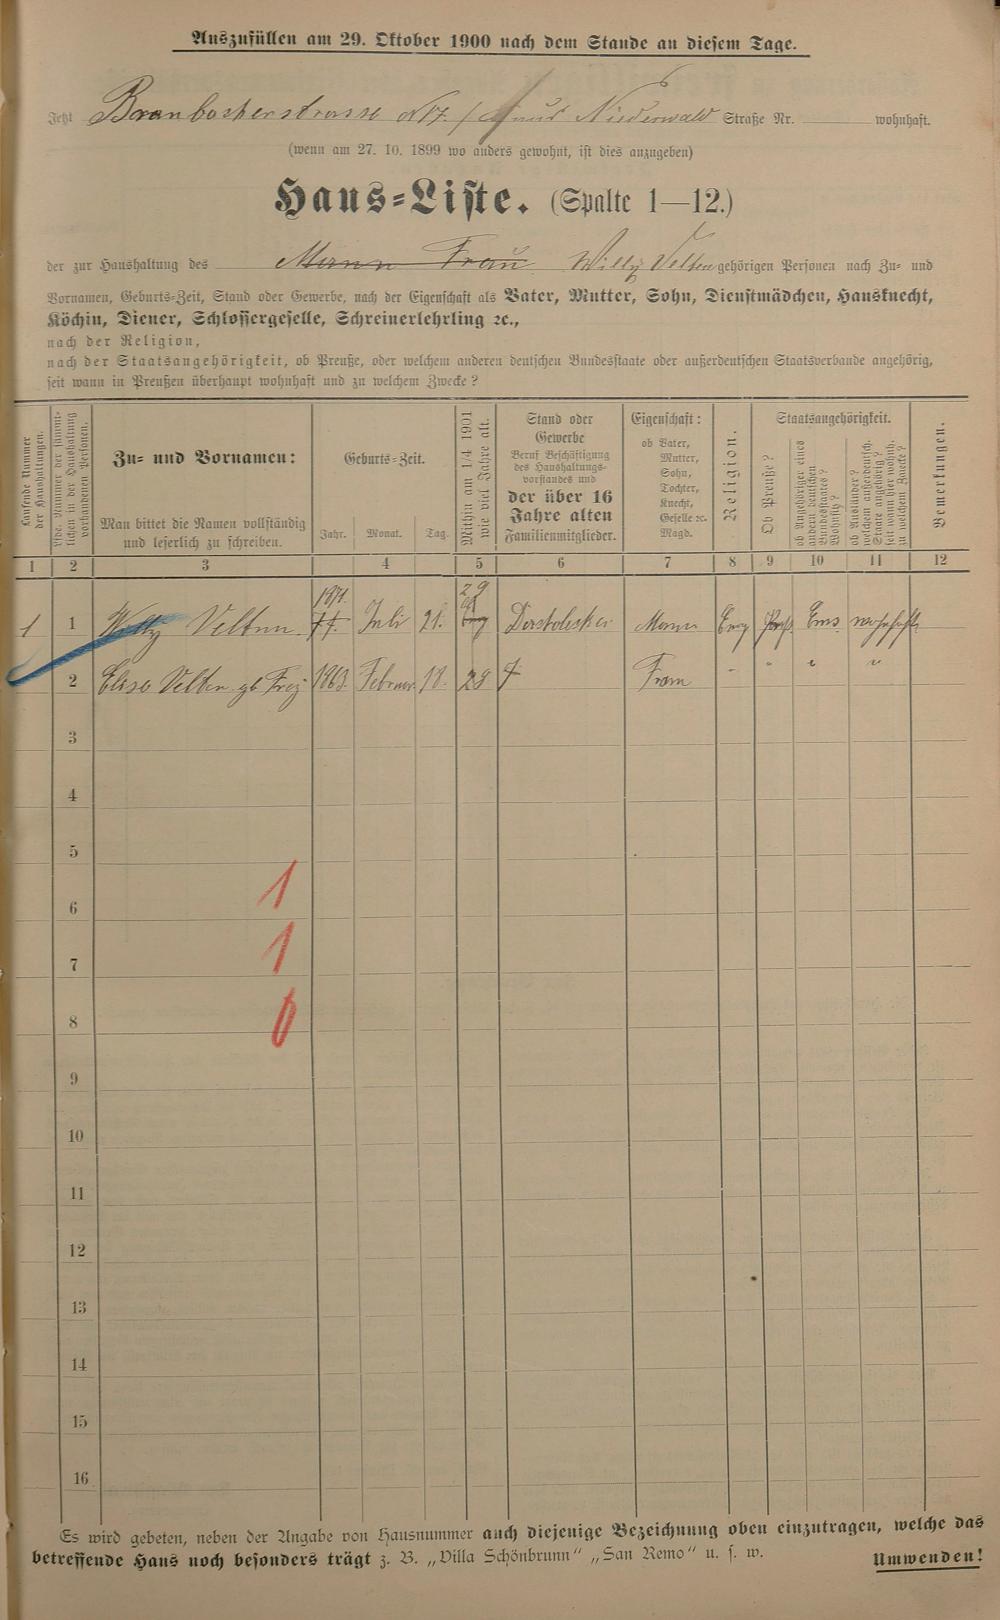 Auszufüllen am 29. Oktober 1900 nach dem Stande an diesem Tage.
Jetzt Braubacherstrasse N 7. / Haus Niederwald Straße Nr. wohnhaft.
(wenn am 27. 10. 1899 wo anders gewohnt, ist dies anzugeben)
Haus=Liste. (Spalte 1—12.)
der zur Haushaltung des Mann Frau Willy Velten gehörigen Personen nach Zu= und
Vornamen, Geburts=Zeit, Stand oder Gewerbe, nach der Eigenschaft als Vater, Mutter, Sohn, Dienstmädchen, Hausknecht,
Köchin, Diener, Schlossergeselle, Schreinerlehrling ꝛc.,
nach der Religion,
nach der Staatsangehörigkeit, ob Preuße, oder welchem anderen deutschen Bundesstaate oder außerdeutschen Staatsverbande angehörig,
seit wann in Preußen überhaupt wohnhaft und zu welchem Zwecke?
Laufende Nummer der Haushaltungen.
Lfde. Nummer der sämmtlichen in der Haushaltung vorhandenen Personen.
Zu= und Vornamen:
Man bittet die Namen vollständig
und leserlich zu schreiben.
Geburts=Zeit.
Jahr. Monat. Tag.
Mithin am 1/4 1901
wie viel Jahre alt.
Stand oder
Gewerbe
Beruf Beschäftigung
des Haushaltungs=
vorstandes und
der über 16
Jahre alten
Familienmitglieder.
Eigenschaft:
ob Vater,
Mutter,
Sohn,
Tochter,
Knecht,
Geselle ꝛc.
Magd.
Religion.
Staatsangehörigkeit.
Ob Preuße?
ob Angehöriger eines
andern deutschen
Bundesstaates?
Wohnsitz?
ob Ausländer?
welchem außerdeutsch.
Staate angehörig?
seit wann hier wohnh.
zu welchem Zwecke?
Bemerkungen.
1 2 3 4 5 6 7 8 9 10 11 12
1 1 Willy Velten. 1871. Juli 21. 29 Mann Evg Preuß. Ems wohnhaft
2 Elise Velten gb Frey 1863. Februar 18. 28 Frau " " " "
3
4
5
6 1
7 1
8 0
9
10
11
12
13
14
15
16
Es wird gebeten, neben der Angabe von Hausnummer auch diejenige Bezeichnung oben einzutragen, welche das
betreffende Haus noch besonders trägt z. B. „Villa Schönbrunn" „San Remo" u. s. w.
Umwenden!